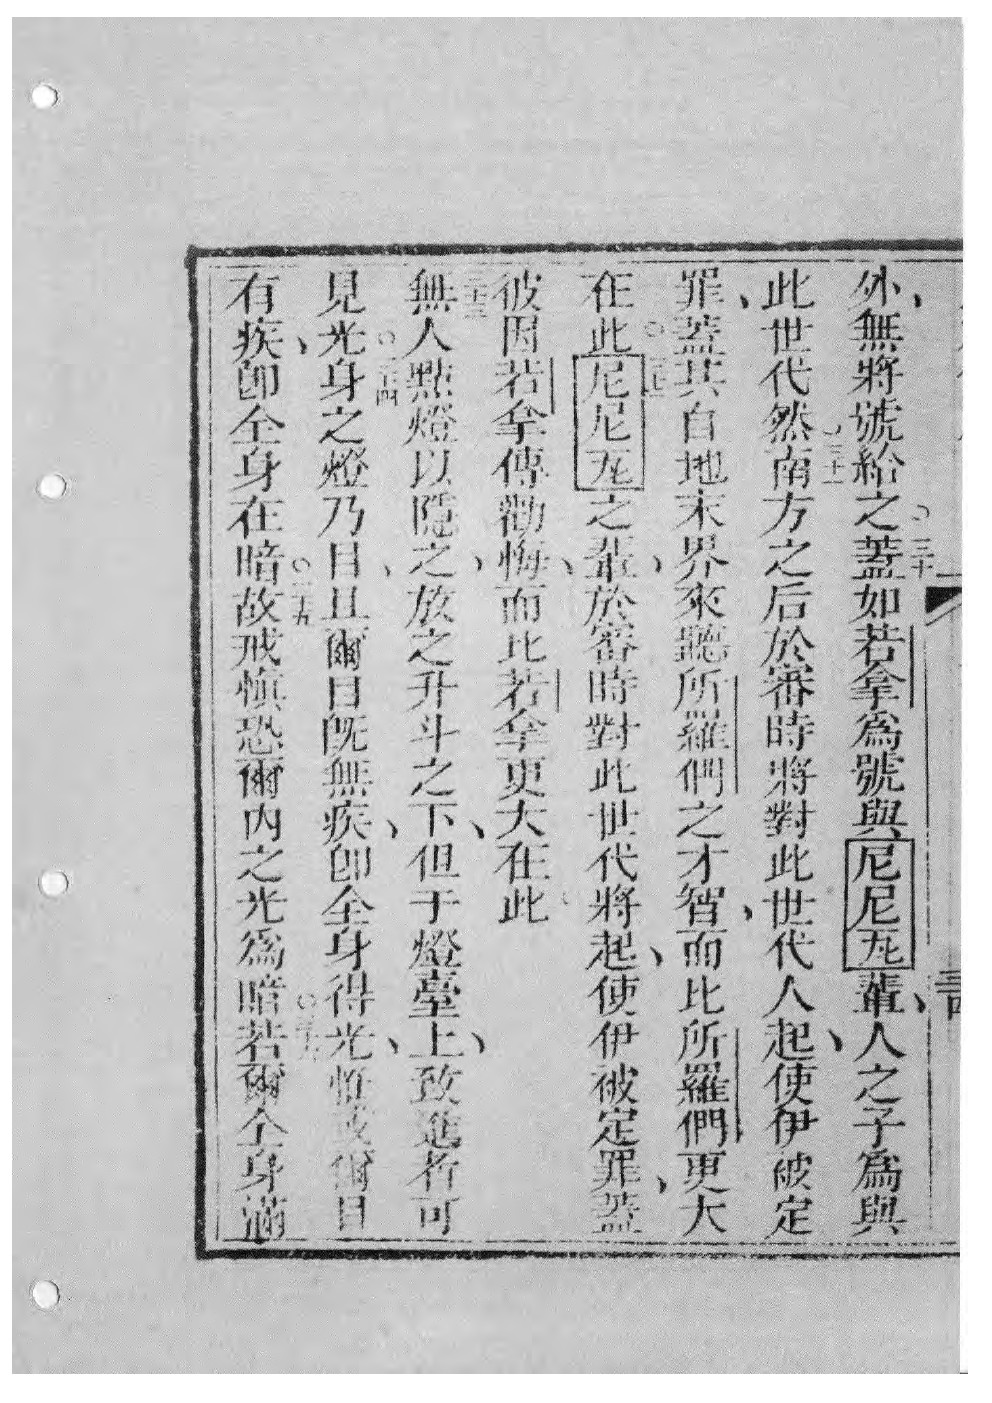 外、無將號給之○三十蓋如若拿為號與尼尼瓦輩、人之子為與
此世代然○三十一南方之后於審時將對此世代人起、使伊被定
罪、蓋其自地末界來聽所羅們之才智、而比所羅們更大
在此○尼尼瓦之輩、於審時對此世代將起、使伊被定罪、蓋
彼因若拿傳勸悔、而比若拿更大在此
三十三無人點燈以隱之、放之升斗之下、但于燈臺上、致進者可
見光○三十四身之燈乃目、且爾目既無疾、即全身得光、惟或爾目
有疾、即全身在暗○三十五故戒慎恐爾內之光為暗○三十六若爾全身滿